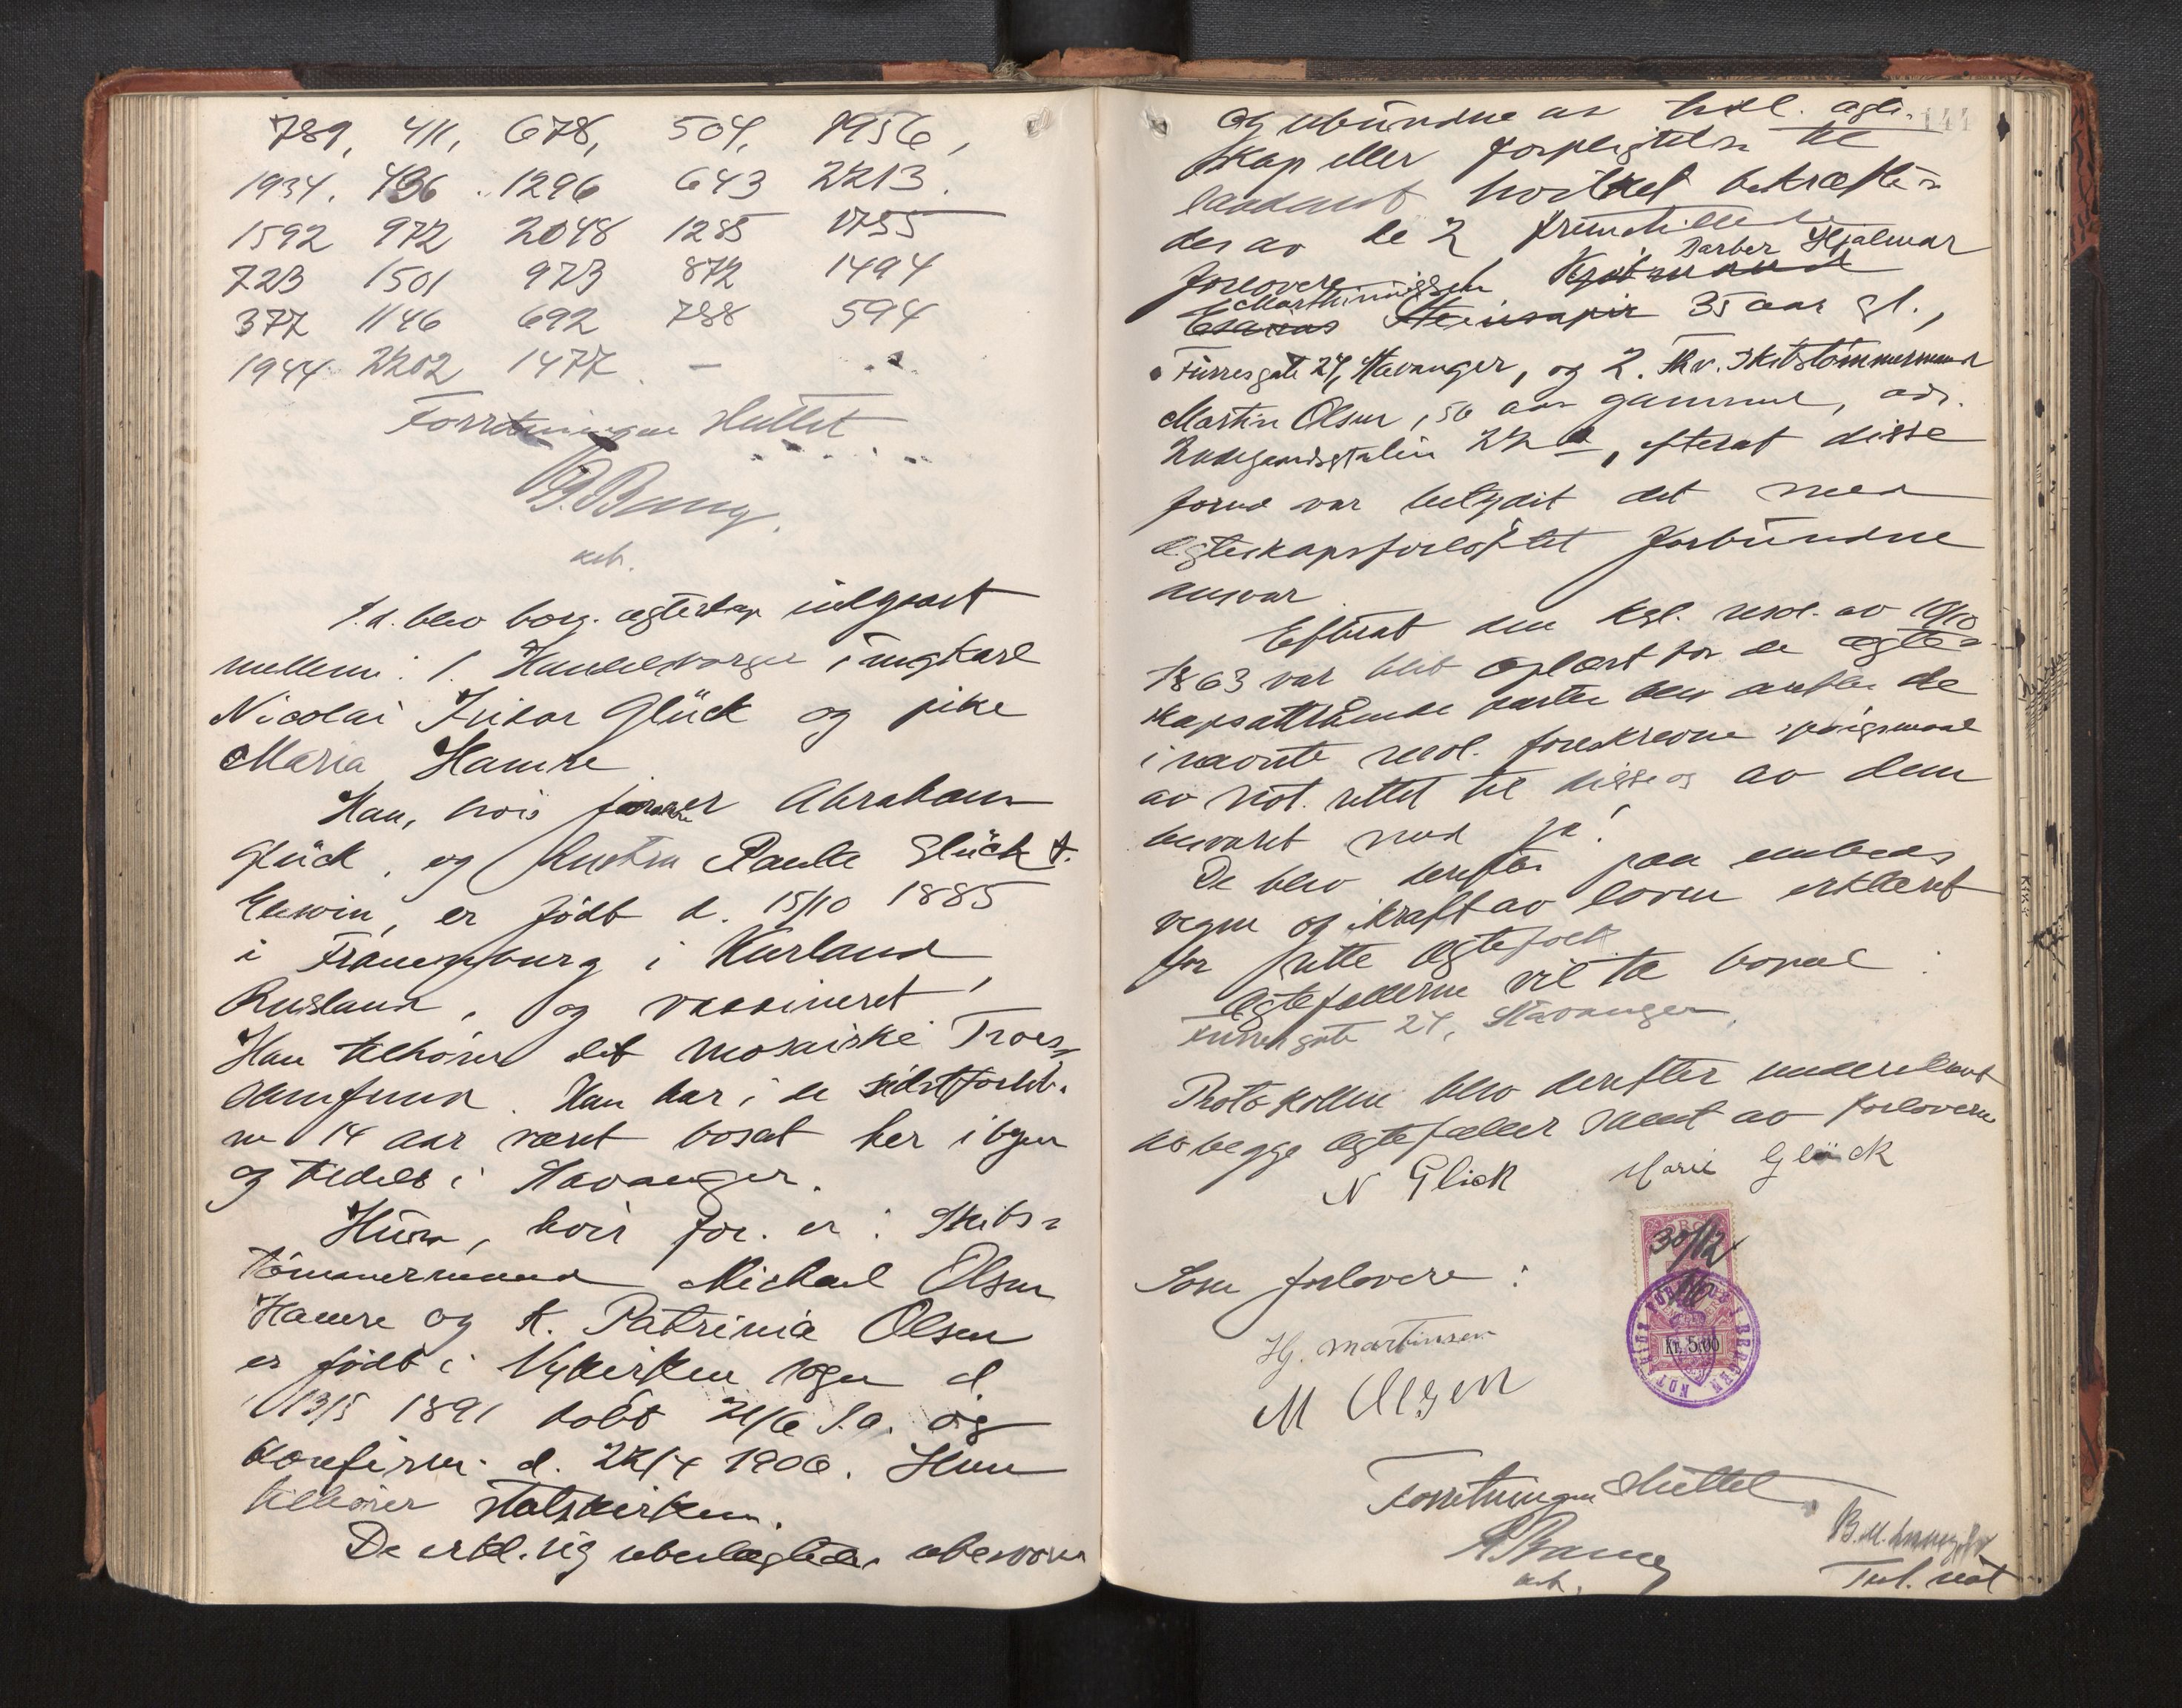 789, 411, 678, 504, 1956,
1934. 436. 1296 643 2213.
1592 972 2048 1285 1755
723 1501 973 872 1494
377 1146 692 788 594
1944 2202 1477. —
Forretningen sluttet
B. Bang.
S.d. blev borg. egteskap indgaaet
mellem: 1. Handelsborger ungkarl
Nicolai Glück og pike
Maria Hamre
Han, hvis er Abraham
Glück, og hustru Paule Glück f.
Lewin, er født d. 15/10 1885
i Frauenburg i Kurland,
Rusland, og vaksineret
Han tilhører det mosaiske Troes-
samfund. Han har i de sidstforløb-
ne 14 aar været bosat her i byen
og tildels i Stavanger.
Hun, hvis for. er: Skibs-
tømmermand Michael Olsen
Hamre og h. Patrinia Olsen
er født i Nykirken sogn d.
13/5 1891 døbt 21/6 s.a. og
konfirm. d. 22/4 1906. Hun
tilhører statskirken.
De erkl. sig ubeslægtede, ubesvogr
141
og ubundne av tidl. egte-
skap eller forpligtelse til
saadant hvilket bekræfte-
des av de 2 fremstillede
Barber Hjalmar
forlovere
Marthinussen 35 aar gl.,
Furresgate 24, Stavanger, og 2. Skibstømmermand
Martin Olsen, 56 aar gammel, adr.
22 a, efterat disse
forud var betydet det med
egteskapsforløftet forbundne
ansvar
Efterat den kgl. resol. av 10/10
1863 var blit oplæst for de egte-
skapsattraaende parter blev derefter de
i nævnte resol. foreskrevne spørgsmaal
av not. rettet til disse og av dem
besvaret med ja!
De blev derefter paa embeds
vegne og i kraft av loven erklæret
for rette egtefolk
Egtefællerne vil ta bopæl:
Furresgate 24, Stavanger.
Protokollen blev derefter underskrevet
av begge egtefæller samt av forloverne
N Glick Marie Glück
30/12
16
NOTARIUS PUBLICUS I BERGEN
Kr. 5.00
Som forlovere:
Hj. Martinsen
M Olsen
Forretningen sluttet
B. Bang